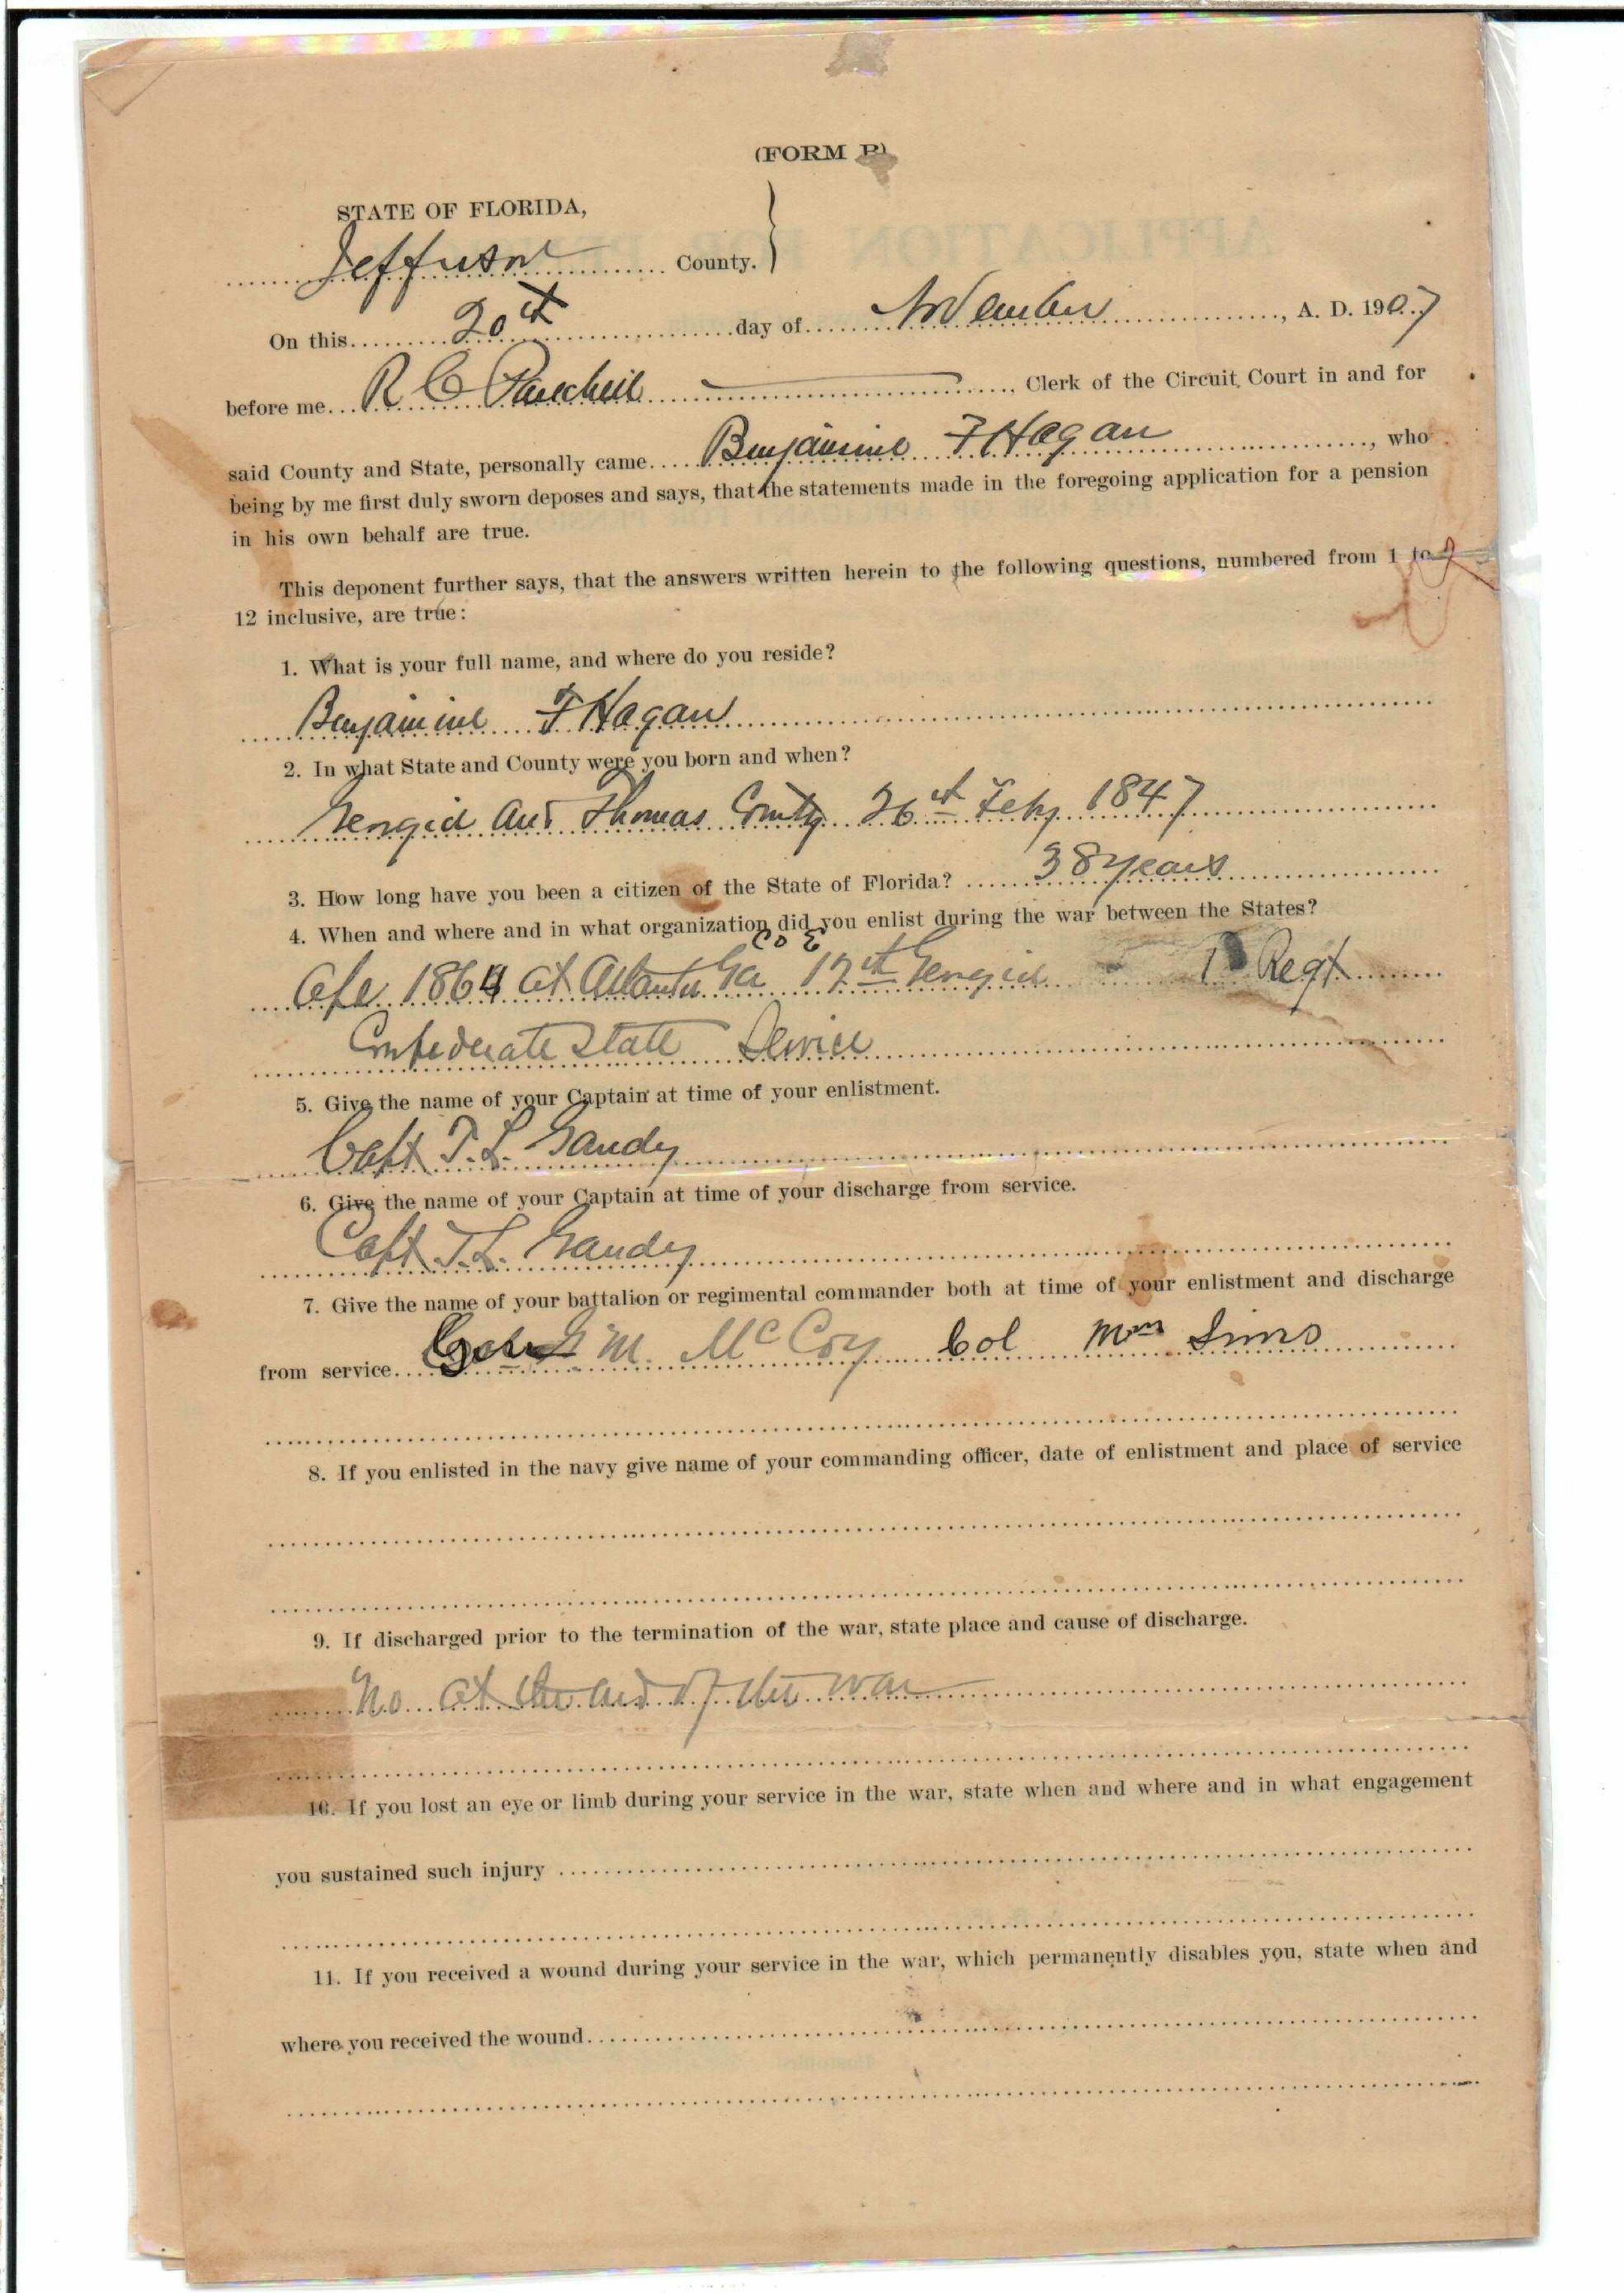 (FORM B)
STATE OF FLORIDA,
Jefferson County.
On this 20th day of November, A. D. 1907
before me R C, Clerk of the Circuit Court in and for
said County and State, personally came Benjamine F Hagan, who
being by me first duly sworn deposes and says, that the statements made in the foregoing application for a pension
in his own behalf are true.
This deponent further says, that the answers written herein to the following questions, numbered from 1 to
12 inclusive, are true:
1. What is your full name, and where do you reside?
Benjamine F Hagan
2. In what State and County were you born and when?
Thomas County 26th Feby 1847
3. How long have you been a citizen of the State of Florida? 38 years
4. When and where and in what organization did you enlist during the war between the States?
Co E
1864 at Atlanta Ga 12th Regt
Confederate State Service
5. Give the name of your Captain at time of your enlistment.
Capt T. L. Gandy
6. Give the name of your Captain at time of your discharge from service.
Capt T. L. Gandy
7. Give the name of your battalion or regimental commander both at time of your enlistment and discharge
from service M. McCoy Col Wm Sims
8. If you enlisted in the navy give name of your commanding officer, date of enlistment and place of service
9. If discharged prior to the termination of the war, state place and cause of discharge.
No at the end of the war
10. If you lost an eye or limb during your service in the war, state when and where and in what engagement
you sustained such injury
11. If you received a wound during your service in the war, which permanently disables you, state when and
where you received the wound